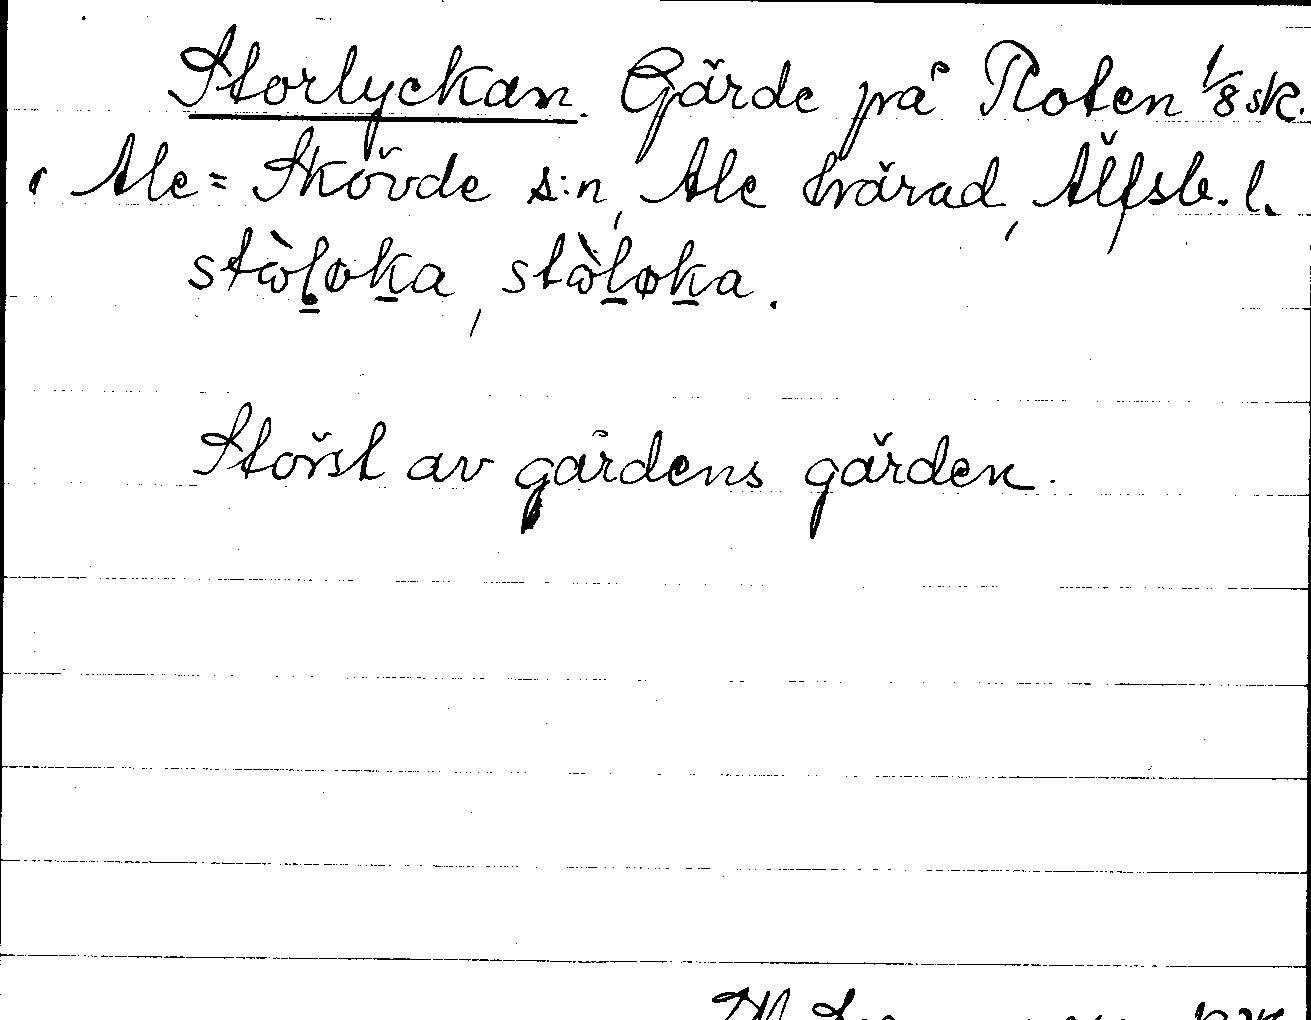 Storlyckan. Gärde på Roten 1/8 sk.
i Ale=Skövde s:n, Ale härad, Älfsb. l.
stòḷøka, stòløka.
Störst av gårdens gärden.